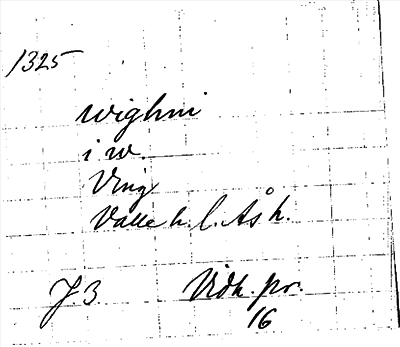 1325
wighni
i w.
Ving
Valle h. l. Ås h.
J. 3. Vidh. pr.
16